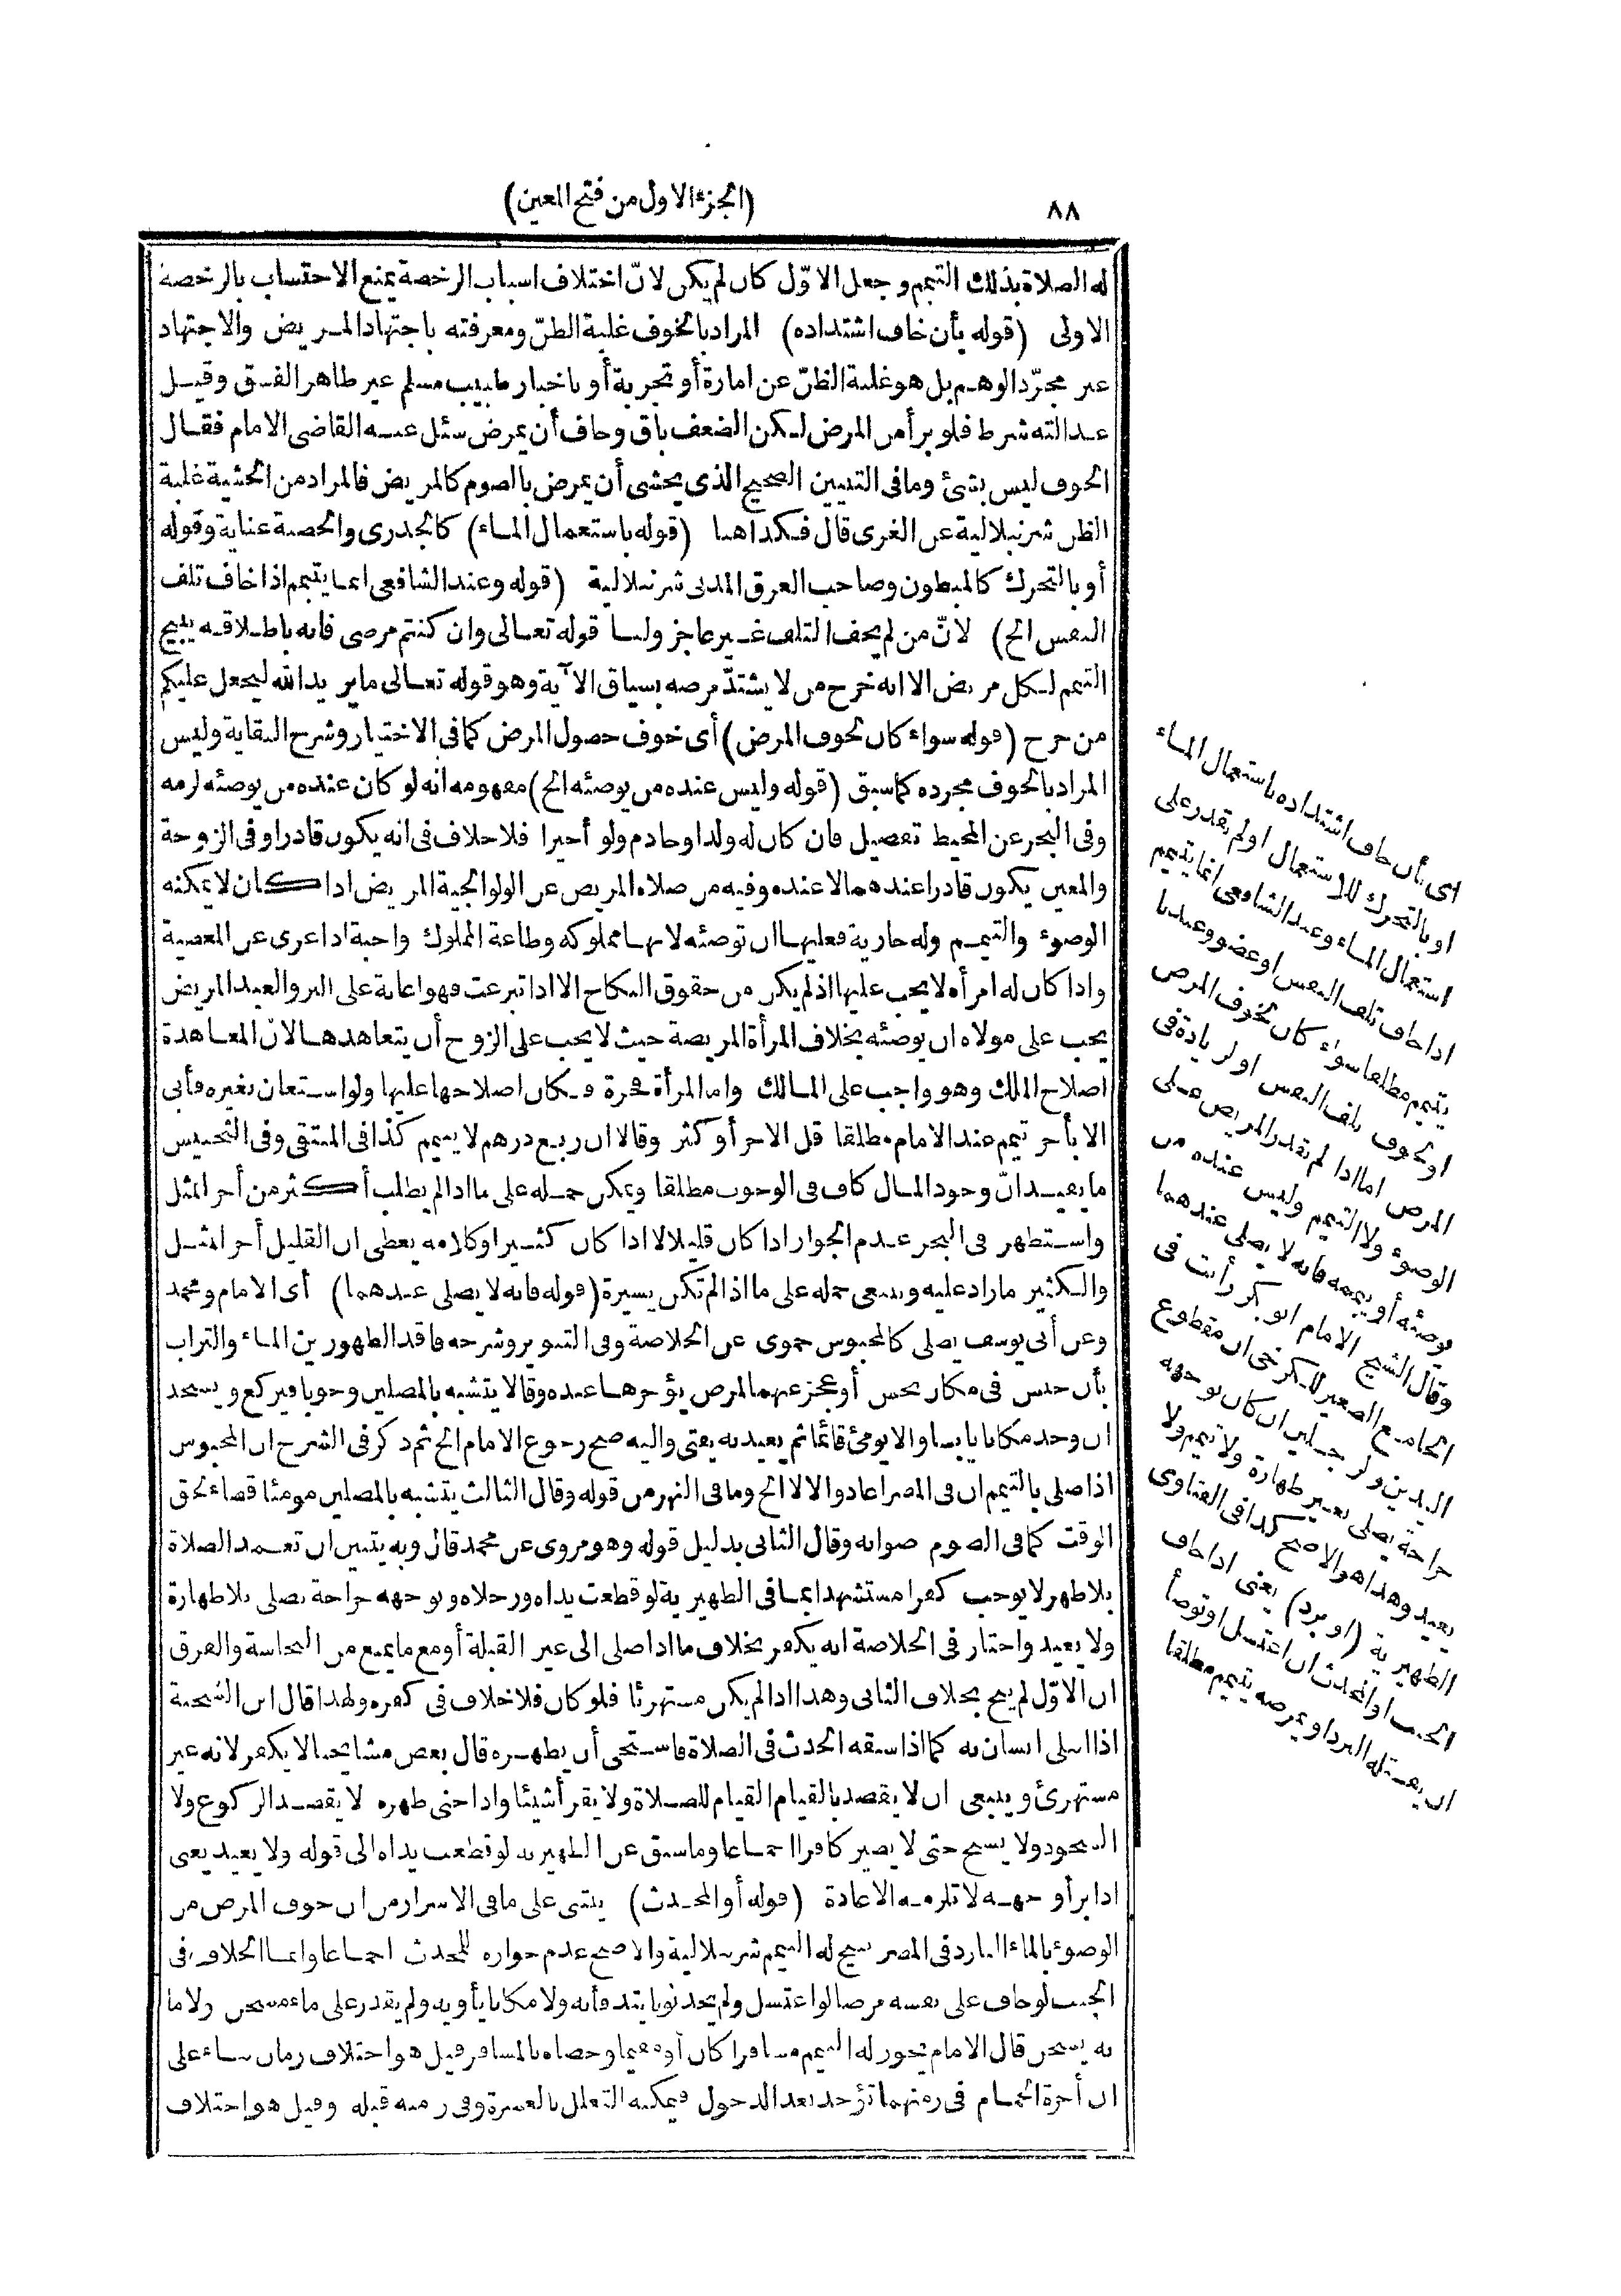 ٨٨ (الجزء الاول من فتح المعين)
له الصلاة بذلك التيمم وجعل الاوّل كان لم يكن لانّ اختلاف اسباب الرخصة يمنع الاحتساب بالرخصة
الاولى (قوله بأن خاف اشتداده) المراد بالخوف غلبة الظنّ ومعرفته باجتهاد المريض والاجتهاد
غير مجرّد الوهم بل هو غلبة الظنّ عن امارة أو تجربة أو باخبار طبيب مسلم غير ظاهر الفسق وقيل
عدالته شرط فلو برأ من المرض لكن الضعف باق وخاف أن يمرض سئل عنه القاضى الامام فقال
الخوف ليس بشئ وما فى التبيين الصحيح الذى يخشى أن يمرض بالصوم كالمريض فالمراد من الخشية غلبة
الظن شرنبلالية عن الغزى قال فكذا هنا (قوله باستعمال الماء) كالجدرى والحصبة عناية وقوله
أو بالتحرك كالمبطون وصاحب العرق المدنى شرنبلالية (قوله وعند الشافعى انما يتيمم اذا خاف تلف
النفس الخ) لانّ من لم يخف التلف غير عاجز ولنا قوله تعالى وان كنتم مرضى فانه باطلاقه يبيح
التيمم لكل مريض الا انه خرج من لا يشتدّ مرضه بسياق الآية وهو قوله تعالى ما يريد الله ليجعل عليكم
من حرج (قوله سواء كان لخوف المرض) أى خوف حصول المرض كما فى الاختيار وشرح النقاية وليس
المراد بالخوف مجرده كما سبق (قوله وليس عنده من يوضئه الخ) مفهومه انه لو كان عنده من يوضئه لزمه
وفى البحر عن المحيط تفصيل فان كان له ولد او خادم ولو أجيرا فلا خلاف فى انه يكون قادرا وفى الزوجة
والمعين يكون قادرا عندهما لا عنده وفيه من صلاة المريض عن الولوالجية المريض اذا كان لا يمكنه
الوضوء والتيمم وله جارية فعليها ان توضئه لانها مملوكه وطاعة المملوك واجبة اذا عرى عن المعصية
واذا كان له امرأة لا يجب عليها اذ لم يكن من حقوق النكاح الا اذا تبرعت فهو اعانة على البر والعبد المريض
يجب على مولاه ان يوضئه بخلاف المرأة المريضة حيث لا يجب على الزوج أن يتعاهدها لانّ المعاهدة
اصلاح الملك وهو واجب على المالك واما المرأة فحرة فكان اصلاحها عليها ولو استعان بغيره فأبى
الا بأجر تيمم عند الامام مطلقا قل الاجر أو كثر وقالا ان ربع درهم لا يتيمم كذا فى المنتقى وفى التجنيس
ما يفيد انّ وجود المال كاف فى الوجوب مطلقا ويمكن حمله على ما اذا لم يطلب أكثر من أجر المثل
واستظهر فى البحر عدم الجواز اذا كان قليلا لا اذا كان كثيرا وكلامه يعطى ان القليل أجر المثل
والكثير ما زاد عليه وينبغى حمله على ما اذا لم تكن يسيرة (قوله فانه لا يصلى عندهما) أى الامام ومحمد
وعن أبى يوسف يصلى كالمحبوس حموى عن الخلاصة وفى التنوير وشرحه فاقد الطهورين الماء والتراب
بأن حبس فى مكان نجس أو عجز عنهما لمرض يؤخرها عنده وقالا يتشبه بالمصلين وجوبا فيركع ويسجد
ان وجد مكانا يابسا والا يومئ قائما ثم يعيد به يفتى واليه صح رجوع الامام الخ ثم ذكر فى الشرح ان المحبوس
اذا صلى بالتيمم ان فى المصر اعاد والا لا الخ وما فى النهر من قوله وقال الثالث يتشبه بالمصلين مومئا قضاء لحق
الوقت كما فى الصوم صوابه وقال الثانى بدليل قوله وهو مروى عن محمد قال وبه يتبين ان تعمد الصلاة
بلا طهر لا يوجب كفرا مستشهدا بما فى الظهيرية لو قطعت يداه ورجلاه وبوجهه جراحة يصلى بلا طهارة
ولا يعيد واختار فى الخلاصة انه يكفر بخلاف ما اذا صلى الى غير القبلة أو مع ما يمنع من النجاسة والفرق
ان الاوّل لم يبح بخلاف الثانى وهذا اذا لم يكن مستهزئا فلو كان فلا خلاف فى كفره ولهذا قال ابن الشحنة
اذا ابتلى انسان به كما اذا سبقه الحدث فى الصلاة فاستحى أن يظهره قال بعض مشايخنا لا يكفر لانه غير
مستهزئ وينبغى ان لا يقصد بالقيام القيام للصلاة ولا يقرأ شيئا واذا حنى ظهره لا يقصد الركوع ولا
السجود ولا يسبح حتى لا يصير كافرا اجماعا وما سبق عن الظهيرية لو قطعت يداه الى قوله ولا يعيد يعنى
اذا برأ وجهه لا تلزمه الاعادة (قوله أو المحدث) يبتنى على ما فى الاسرار من ان خوف المرض من
الوضوء بالماء البارد فى المصر يبيح له التيمم شرنبلالية والاصح عدم جوازه للمحدث اجماعا وانما الخلاف فى
الجنب لو خاف على نفسه مرضا لو اغتسل ولم يجد ثوبا يتدفأ به ولا مكانا يأويه ولم يقدر على ماء مسخن ولا ما
به يسخن قال الامام يجوز له التيمم مسافرا كان أو مقيما وخصاه بالمسافر قيل هو اختلاف زمان بناء على
ان أجرة الحمام فى زمنهما تؤخذ بعد الدخول فيمكنه التعلل بالعسرة وفى زمنه قبله وقيل هو اختلاف
اى بأن خاف اشتداده باستعمال الماء
او بالتحرك للاستعمال او لم يقدر على
استعمال الماء وعند الشافعى انما يتيمم
اذا خاف تلف النفس او عضو وعندنا
يتيمم مطلقا سواء كان لخوف المرض
او لخوف تلف النفس او لزيادة فى
المرض اما اذا لم يقدر المريض على
الوضوء ولا التيمم وليس عنده من
يوضئه أو ييممه فانه لا يصلى عندهما
وقال الشيخ الامام ابو بكر رأيت فى
الجامع الصغير للكرخى ان مقطوع
اليدين والرجلين ان كان بوجهه
جراحة يصلى بغير طهارة ولا تيمم ولا
يعيد وهذا هو الاصح كذا فى الفتاوى
الظهيرية (او برد) يعنى اذا خاف
الجنب او المحدث ان اغتسل او توضأ
ان يقتله البرد او يمرضه يتيمم مطلقا